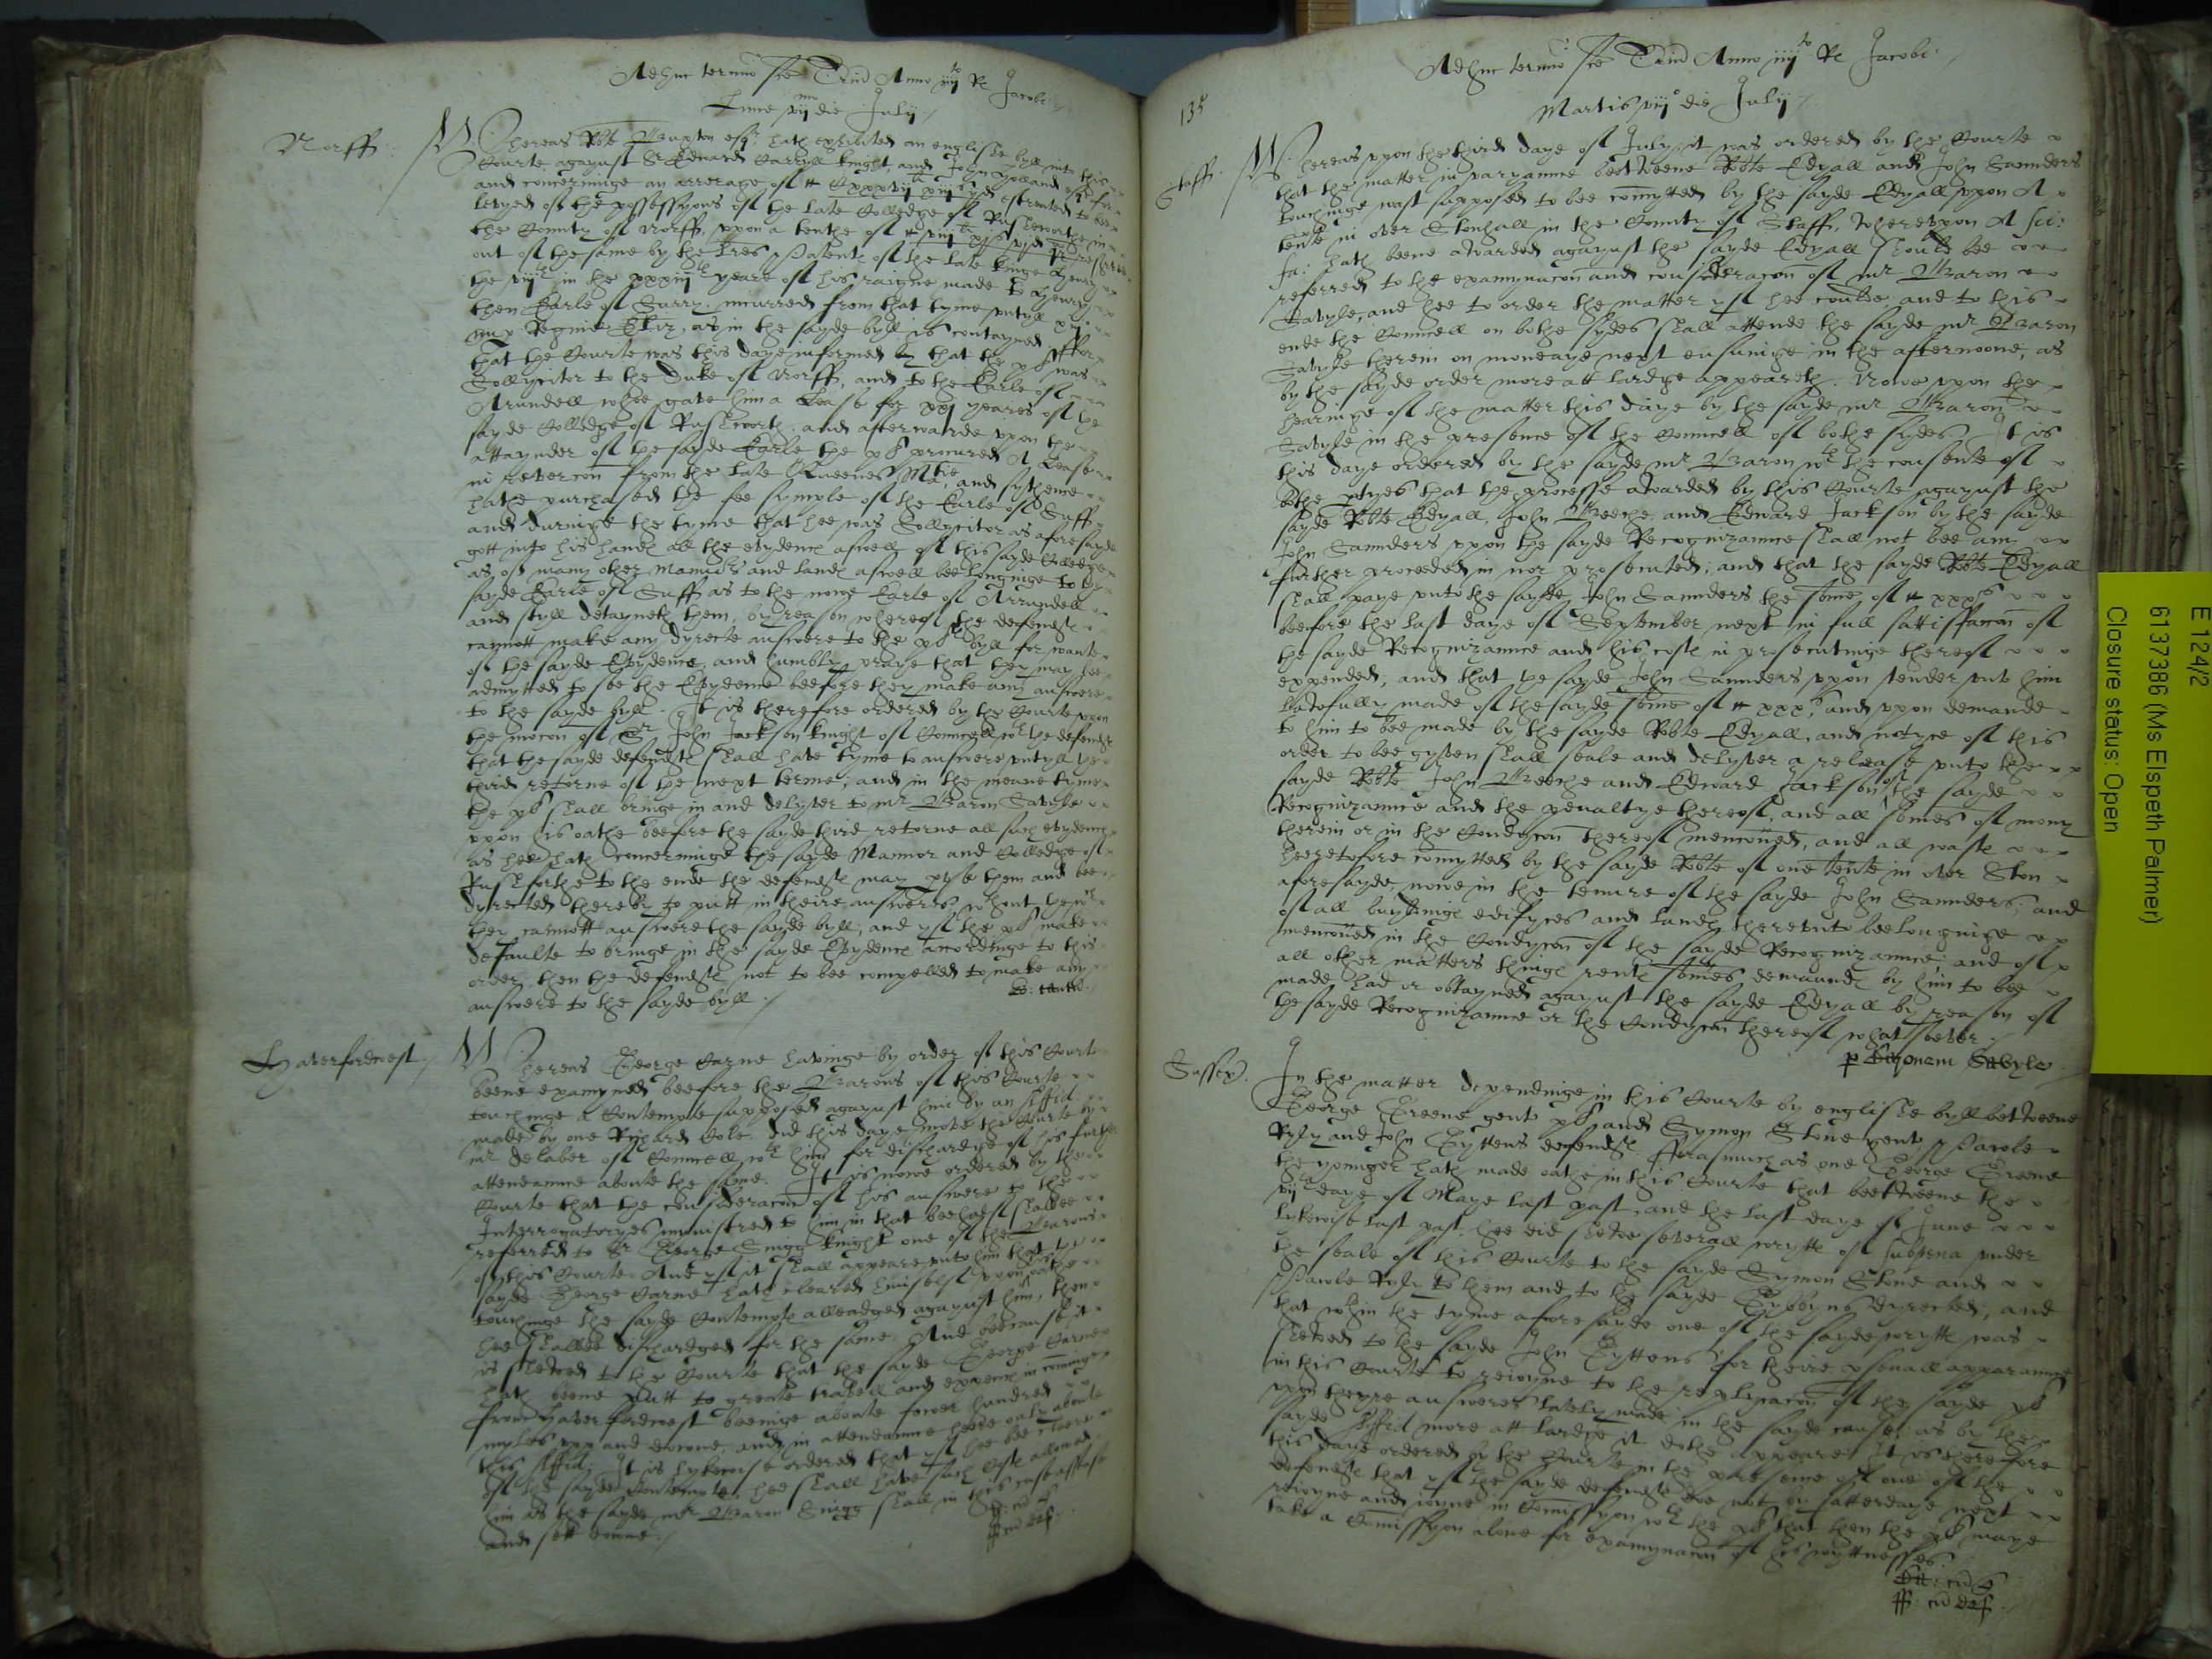 Adhuc termino sce Trin Anno iiij to Re Jacobi
Lune vij mo die July
Norff:
Whereas Robte Buxton esqr hath exhibited an englishe byll into this
Courte agaynst Sr Edward Carryll knight, and John Holland esqr for
and concerninge an arrerage of
levyed of the possessyons of the late Colledge of Rushworthe in
the County of Norff, uppon a tenthe of
out of the same by the lres Patente of the late kinge Henry
the viijth in the xxxiijth yeare of his raigne made to Henry
then Earle of Surry, incurred from that tyme untyll
Regine Eliz, as in the sayde byll is contayned
that the Courte was this daye informed by that the pl was
Sollycitor to the Duke of Norff, and to the Earle of
Arundell whoe gave him a Lease for xxj yeares of the
sayde Colledge of Rushworth, and afterwarde upon the
attaynder of the sayde Earle the pl procured A Lease
in revercon from the late Queenes Matie, and sythence
hathe purchased the fee symple of the Earle of Suff
and duringe the tyme that hee was Sollycitor as aforesayde
gott into his hande all the evydence aswell of this sayde Colledge
as of many other Mannors and lande aswell beelonginge to the
sayde Earle of Suff as to the nowe Earle of Arrundell
and styll detayneth them, by reason whereof the defendte
cannott make any dyrecte answere to the pl byll for wante
of the sayde Evydence, and humbly praye that they may bee
admytted to see the Evydence beefore they make any answere
to the sayde byll. It is therefore ordered by the Courte upon
the mocon of Sr John Jackson knight of Councell wth the defendte
that the sayde defendte shall have tyme to answere untyll the
third retorne of the next terme, and in the meane tyme
the pl shall bringe in and delyver to mr Baron Savyle
uppon his oathe beefore the sayde third retorne all such evydence
as hee hath concerninge the sayde Mannor and Colledge of
Rushforthe to the ende the defendte may pruse them and bee
dyrected thereby to putt in theire answeres wthout the wch
they cannott answere the sayde byll, and yf the pl make
defaulte to bringe in the sayde Evydence accordinge to this
order, then the defendte not to bee compelled to make any
answere to the sayde byll.
Haverfordwest.
Whereas George Carne havinge by order of this Courte
beene examyned beefore the Barons of this Courte
touchinge a Contempte supposed agaynst him by an Affid:
made by one Rychard Cole, did this daye move the Courte by
mr Delaber of Councell wth him for dischardge of his further
attendaunce aboute the same. It is nowe ordered by the
Courte that the consideracon of his answere to the
Interrogatoryes ministred to him in that beehalf shalbee
referred to Sr George Snigg knight one of the Barons
of this Courte And yf it shall appeare unto him that the
sayde George Carne hath cleared himself upon oathe
touchinge the sayde Contempte alleadged agaynst him, then
hee shalbe dischardged for the same. And because it
is shewed to the Courte that the sayde George Carne
hath beene putt to greate travell and expence in cominge
from Haverfordwest beeinge aboute fower hundred
myles upp and downe, and in attendaunce heere only aboute
this Affid. It is lykewise ordered that yf hee bee cleere
of the sayde Contempte, hee shall have such Coste allowed
him as the sayde mr Baron Snigg shall in this case assesse
and sett downe.
135
Adhuc termino sce Trin Anno iiij to Re Jacobi
Martis viij o die July
Staff.
Whereas upon the third daye of July, it was ordered by the Courte
that the matter in varyaunce beetweene Robte Edyall and John Saunders
touchinge wast supposed to bee comytted by the sayde Edyall uppon A
tente in over Stonhall in the County of Staff, whereupon A sci:
fa: hath beene awarded agaynst the sayde Edyall should bee
referred to the examynacon and consideracon of mr Baron
Savyle, and hee to order the matter yf hee coulde, and to this
ende the Councell on bothe sydes shall attende the sayde mr Baron
Savyle therein on mondaye next ensuinge in the afternoone, as
by the sayde order more att lardge appeareth. Nowe upon the
hearinge of the matter this daye by the sayde mr Baron
Savyle in the presence of the Councell of bothe sydes. It is
this daye ordered by the sayde mr Baron wth the consente of
bothe ptyes that the processe awarded by this Courte agaynst the
sayde Robte Edyall, John Breeche, and Edward Jackson by the sayde
John Saunders upon the sayde Recognizaunce shall not bee any
further proceeded in nor prosecuted; and that the sayde Robte Edyall
shall paye unto the sayde John Saunders the some of xxxs
beefore the last daye of September next in full sattisfaccon of
the sayde Recognizaunce and his coste in prosecutinge thereof
expended, and that the sayde John Saunders upon tender unto him
lawfully made of the sayde some of xxxs, and upon demaunde
to him to bee made by the sayde Robte Edyall, and notyce of this
order to bee gyven shall seale and delyver a release unto the
sayde Robte John Breeche and Edward Jackson of the sayde
Recognizaunce and the penaltye thereof, and all somes of money
therein or in the Condycon thereof menconed, and all waste
heeretofore comytted by the sayde Robte of one tente in over Ston
aforesayde, nowe in the tenure of the sayde John Saunders; and
of all buyldinge edifyces and lande thereunto beelonginge
menconed in the Condycon of the sayde Recognizaunce; and of
all other matters thinge rente somes demaunde by him to bee
made had or obtayned agaynst the sayde Edyall by reason of
the sayde Recognizaunce or the Condycon thereof whatsoever.
p Baronem Savyle
Sussex.
In the matter dependinge in this Courte by englishe byll betweene
George Greene gent pl and Symon Stone gent, Parole
Ryly and John Gyttens defendte. Forasmuch as one George Greene
the younger hath made oathe in this Courte that beetweene the
vijth daye of Maye last past, and the last daye of June
lykewise last past, hee did shewe severall wrytte of subpena under
the seale of this Courte to the sayde Symon Stone and
Parole Ryly to them and to the sayde Gybbyns dyrected, and
that wthin the tyme aforesayde one of the sayde wrytte was
shewed to the sayde John Gyttens for theire psonall apparaunce
in this Courte to reioyne to the replycacon of the sayde pl
upon theyre answeres lately made in the sayde cause, as by the
sayde Affid more att lardge it dothe appeare. It is therefore
this daye ordered by the Courte in the presence of one of the
defendte that yf the sayde defendte doe not by satterdaye next
reioyne and ioyne in Comissyon wth the pl that then the pl maye
take a Comissyon alone for examynacon of his wyttnesses.
E 124/2
6137386 (Ms Elspeth Palmer)
Closure status: Open